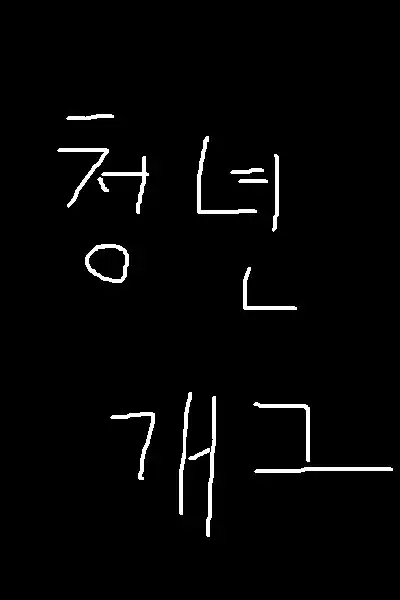 청년
개그